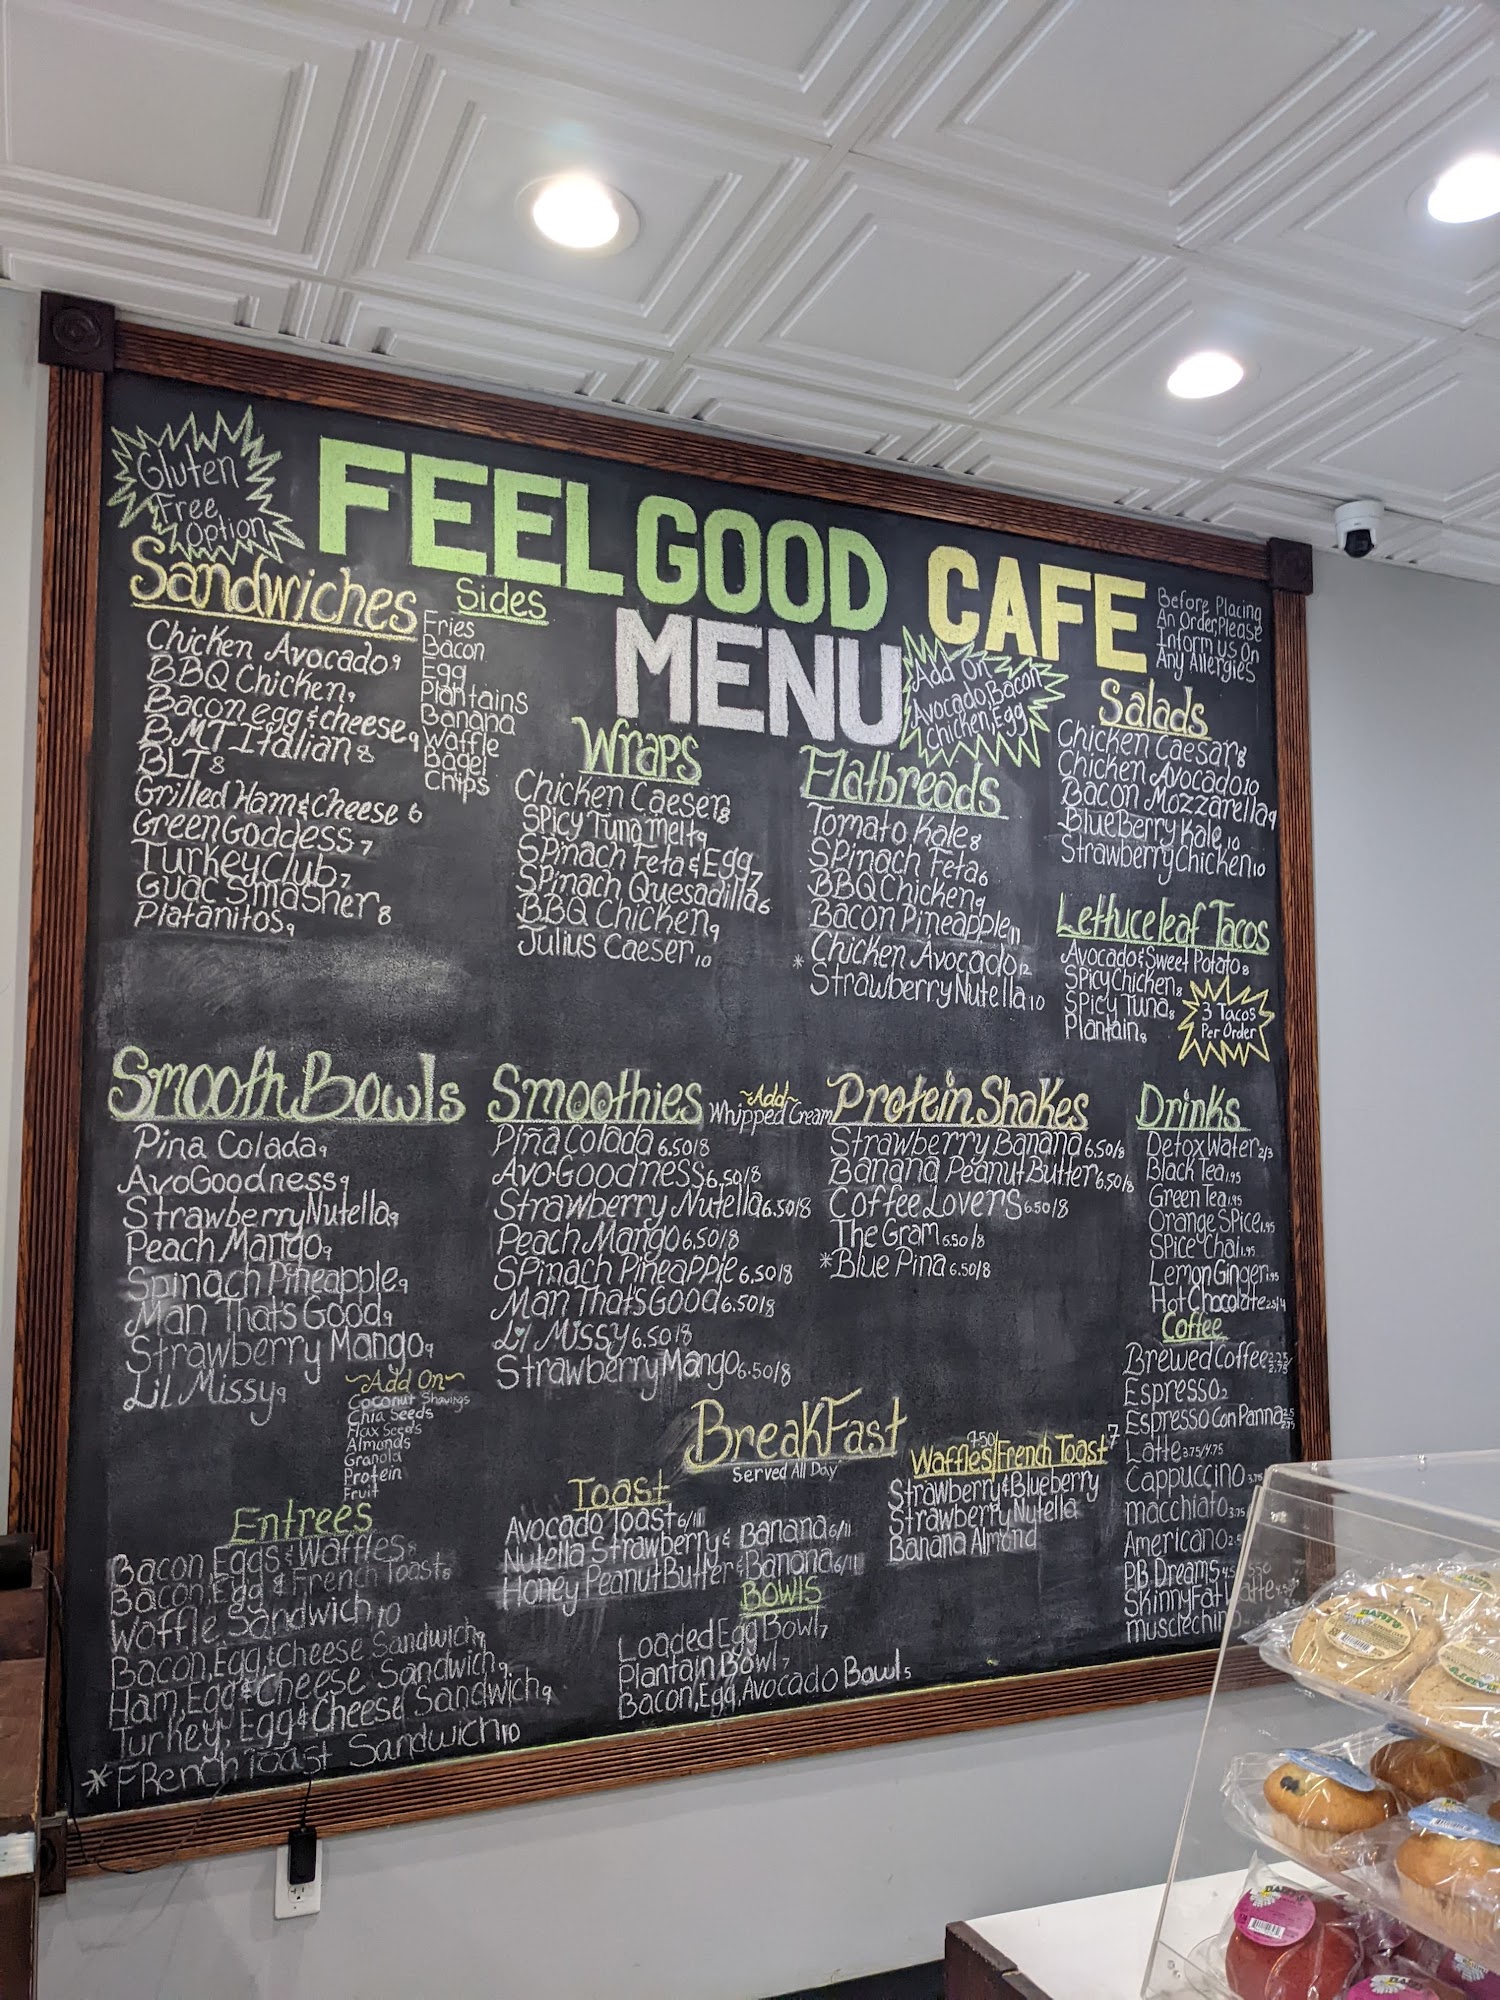 Gluten
Free
Option
FEEL GOOD CAFE
MENU
Before Placing
An Order, Please
Inform us On
Any Allergies
Add On
Avocado, Bacon
Chicken, Egg
Sandwiches
Chicken Avocado 9
BBQ Chicken 9
Bacon egg & cheese 9
BMT Italian 8
BLT 8
Grilled Ham & Cheese 6
Green Goddess 7
Turkey Club 7
Guac Smasher 8
Platanitos 9
Sides
Fries
Bacon
Egg
Plantains
Banana
Waffle
Bagel
Chips
Wraps
Chicken Caeser 8
Spicy Tuna Melt 9
Spinach Feta & Egg 7
Spinach Quesadilla 6
BBQ Chicken 9
Julius Caeser 10
Flatbreads
Tomato Kale 8
Spinach Feta 6
BBQ Chicken 9
Bacon Pineapple 11
* Chicken Avocado 12
Strawberry Nutella 10
Salads
Chicken Caesar 8
Chicken Avocado 10
Bacon Mozzarella 9
BlueBerry Kale 10
Strawberry Chicken 10
Lettuce leaf Tacos
Avocado & Sweet Potato 8
Spicy Chicken 8
Spicy Tuna 8
Plantain 8
3 Tacos
Per Order
Smooth Bowls
Pina Colada 9
AvoGoodness 9
Strawberry Nutella 9
Peach Mango 9
Spinach Pineapple 9
Man That's Good 9
Strawberry Mango 9
Lil Missy 9
~Add On~
Coconut Shavings
Chia Seeds
Flax Seeds
Almonds
Granola
Protein
Fruit
Smoothies
~Add~
Whipped Cream
Piña Colada 6.50/8
AvoGoodness 6.50/8
Strawberry Nutella 6.50/8
Peach Mango 6.50/8
Spinach Pineapple 6.50/8
Man That's Good 6.50/8
Lil Missy 6.50/8
Strawberry Mango 6.50/8
Protein Shakes
Strawberry Banana 6.50/8
Banana Peanut Butter 6.50/8
Coffee Lovers 6.50/8
The Gram 6.50/8
*Blue Pina 6.50/8
Drinks
Detox Water 2/3
Black Tea 1.95
Green Tea 1.95
Orange Spice 1.95
Spice Chai 1.95
Lemon Ginger 1.95
Hot Chocolate 2.5/4
Coffee
Brewed Coffee 2.25/2.75
Espresso 2
Espresso Con Panna 2.5
Latte 3.75/4.75
Cappuccino 3.75
macchiato 3.75
Americano 2.5
PB Dreams
Skinny Fat Latte
musclechino
BreakFast
Served All Day
Entrees
Bacon, Eggs & Waffles 8
Bacon, Egg & French Toast 8
Waffle Sandwich 10
Bacon, Egg, & Cheese Sandwich 9
Ham, Egg & Cheese Sandwich 9
Turkey, Egg & Cheese Sandwich 9
* FRench Toast Sandwich 10
Toast
Avocado Toast 6/11
Nutella Strawberry & Banana 6/11
Honey Peanut Butter & Banana 6/11
Bowls
Loaded Egg Bowl 7
Plantain Bowl 7
Bacon, Egg, Avocado Bowl
7.50
Waffles/French Toast 7
Strawberry & Blueberry
Strawberry Nutella
Banana Almond